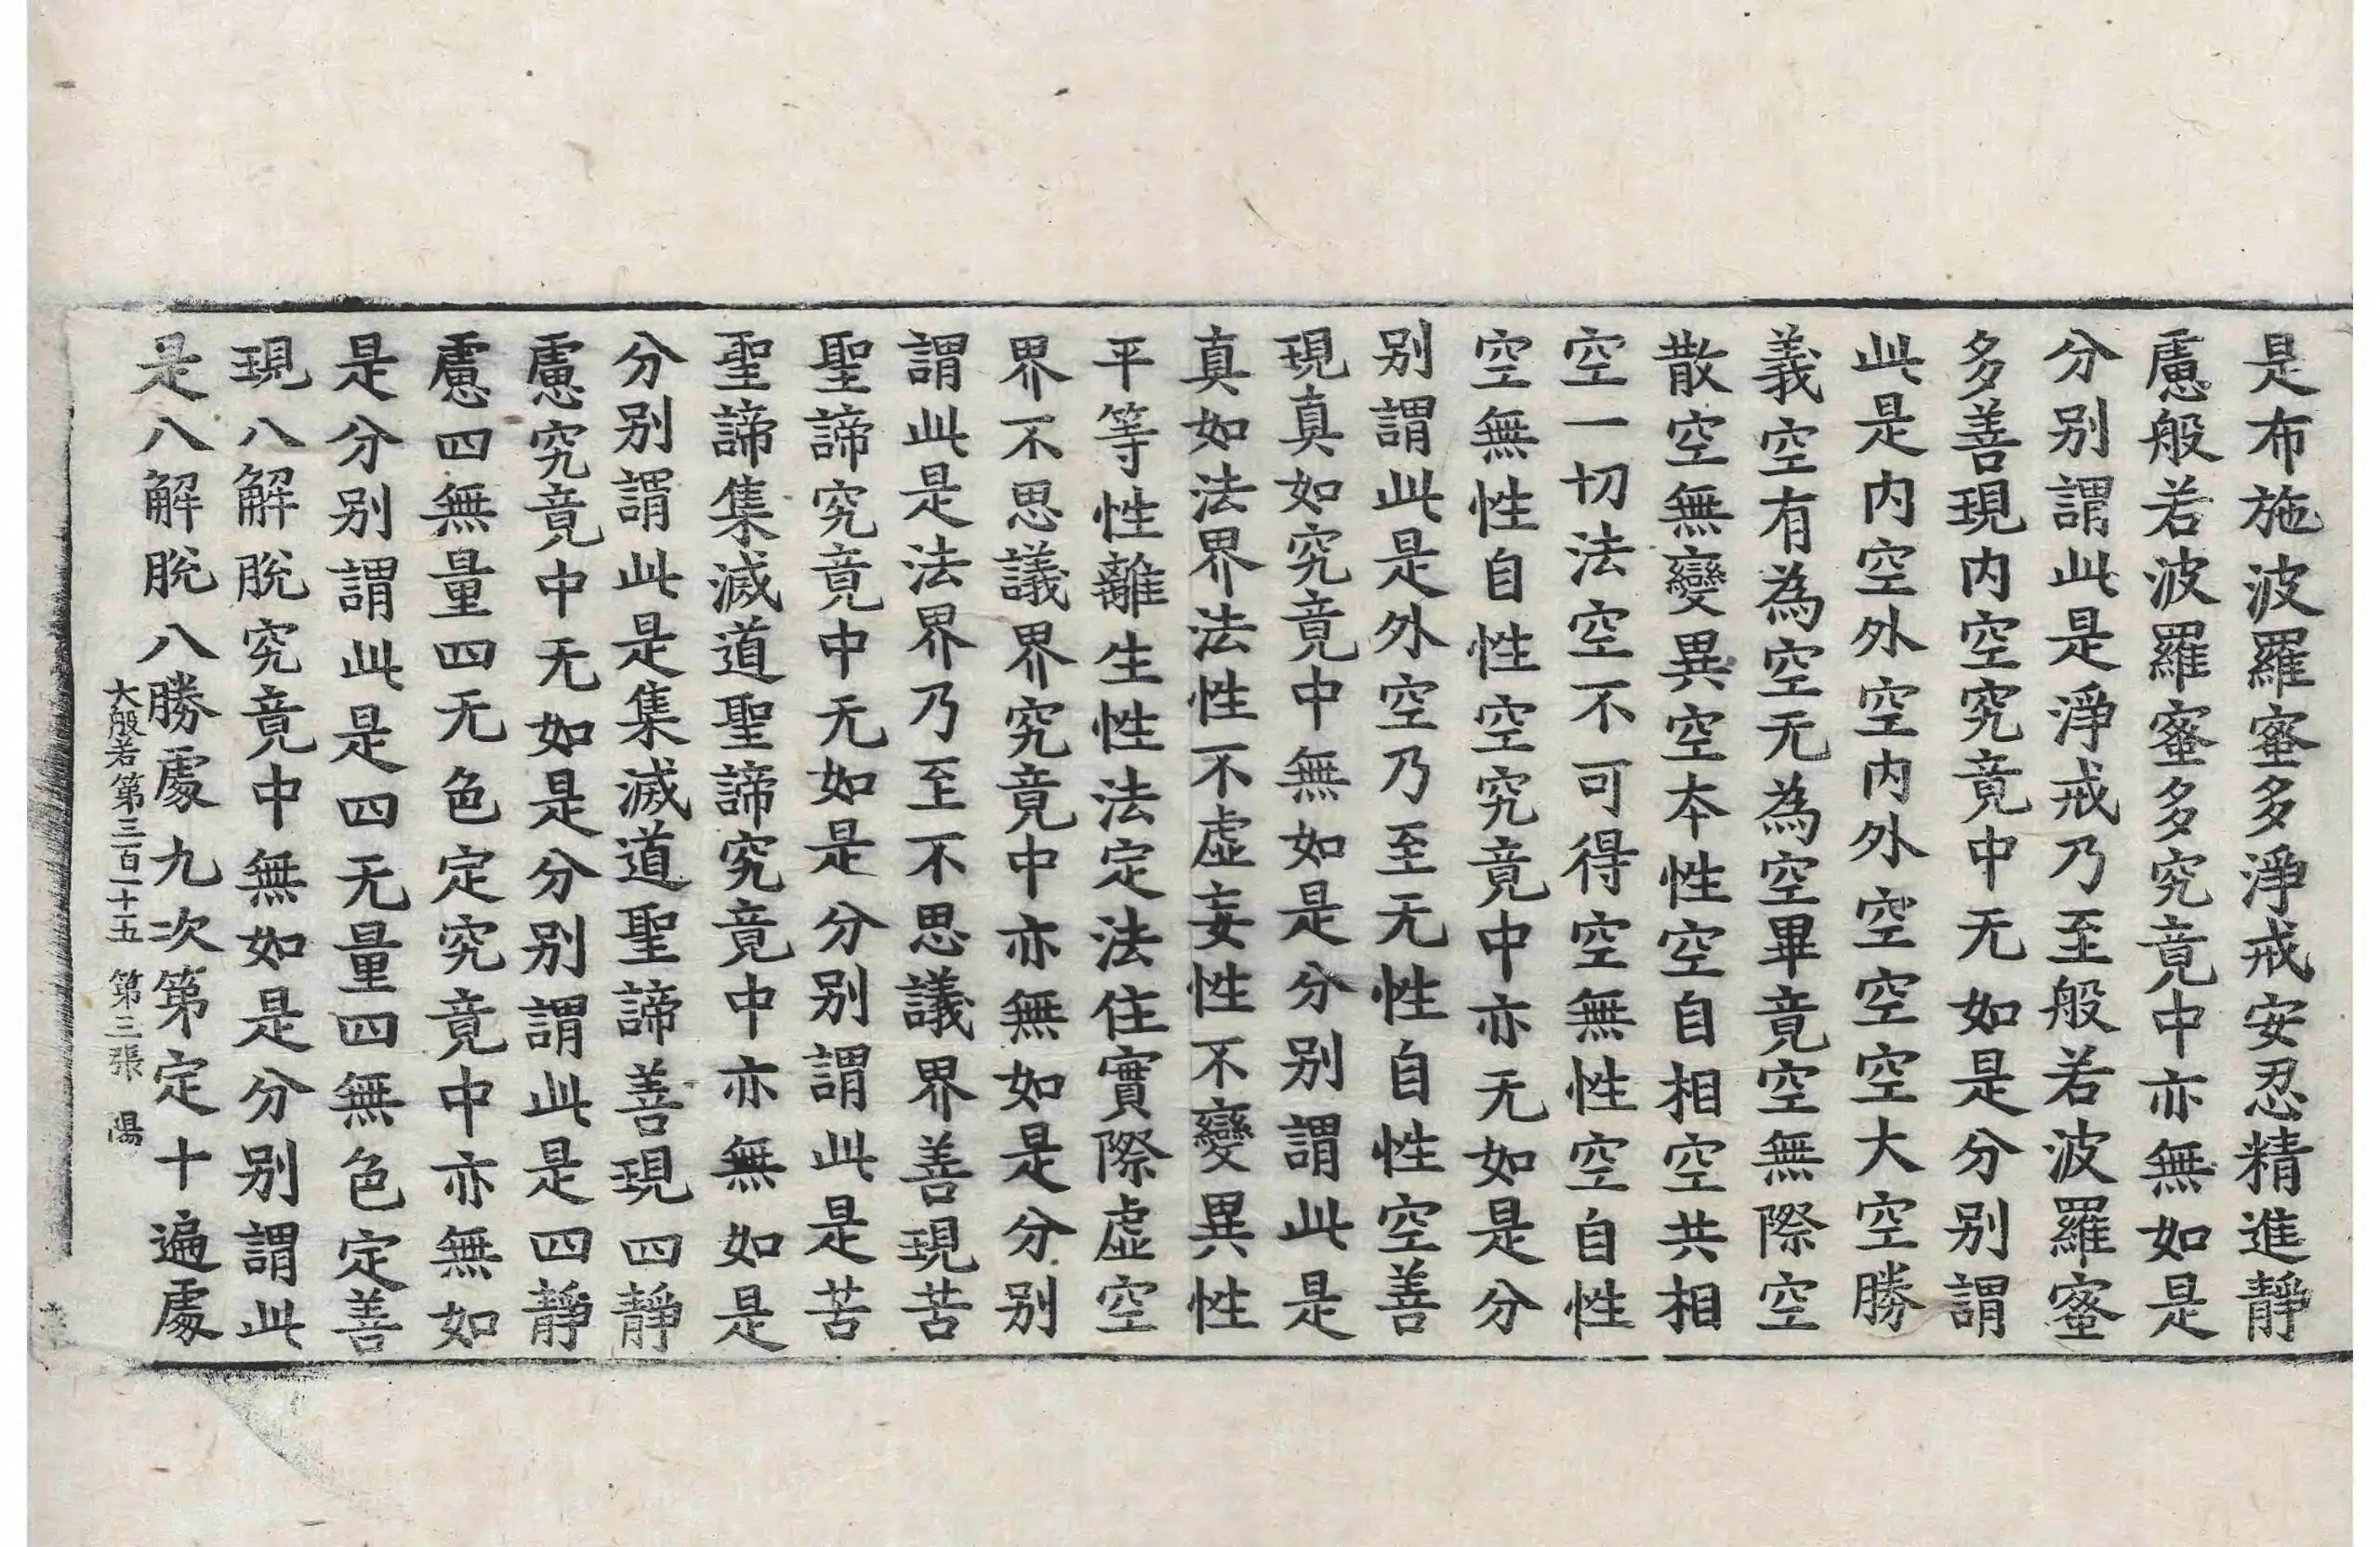 是布施波羅蜜多淨戒安忍精進靜
慮般若波羅蜜多究竟中亦無如是
分別謂此是淨戒乃至般若波羅蜜
多善現内空究竟中无如是分別謂
此是内空外空内外空空空大空勝
義空有為空无為空畢竟空無際空
散空無變異空本性空自相空共相
空一切法空不可得空無性空自性
空無性自性空究竟中亦无如是分
別謂此是外空乃至无性自性空善
現真如究竟中無如是分別謂此是
真如法界法性不虛妄性不變異性
平等性離生性法定法住實際虛空
界不思議界究竟中亦無如是分別
謂此是法界乃至不思議界善現苦
聖諦究竟中无如是分別謂此是苦
聖諦集滅道聖諦究竟中亦無如是
分別謂此是集滅道聖諦善現四靜
慮究竟中无如是分別謂此是四靜
慮四無量四无色定究竟中亦無如
是分別謂此是四无量四無色定善
現八解脫究竟中無如是分別謂此
是八解脫八勝處九次第定十遍處
大般若第三百二十五 第三張 陽